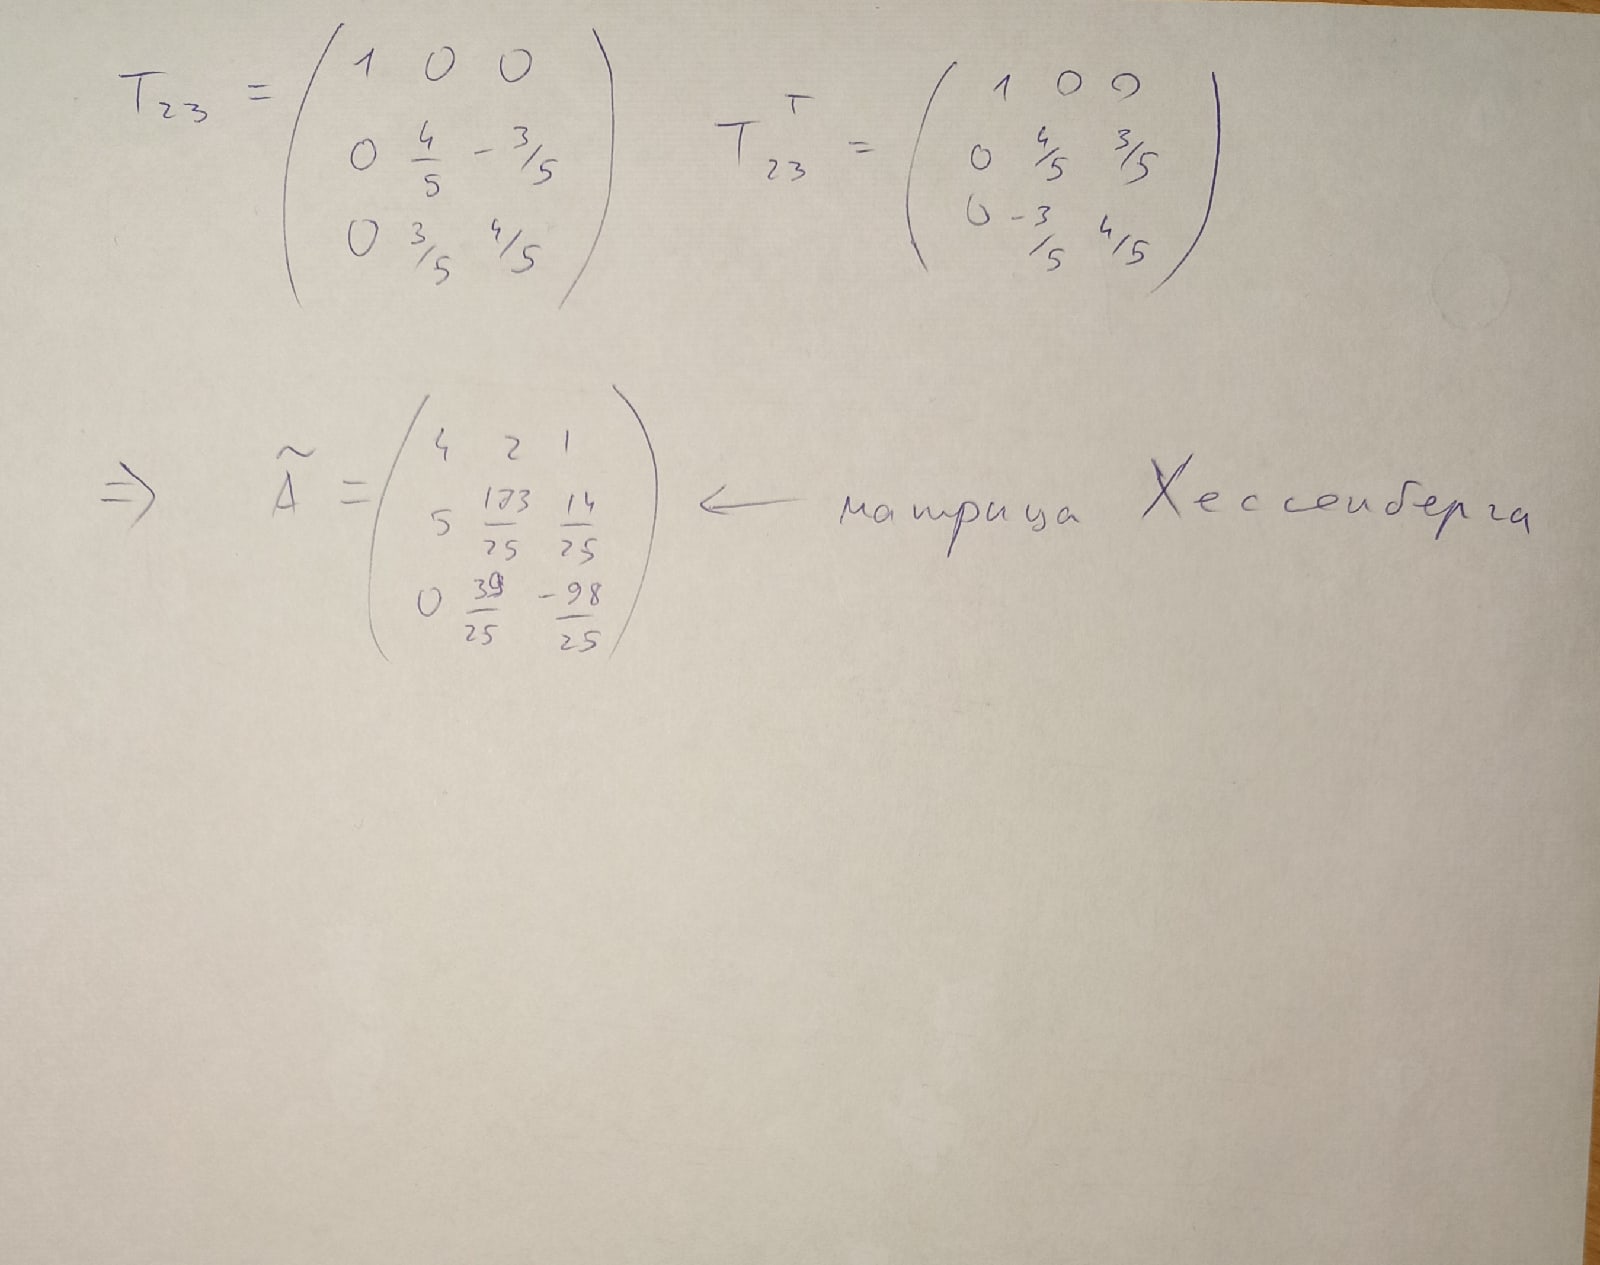 T₂₃ = ( 1 0 0 ; 0 4/5 -3/5 ; 0 3/5 4/5 ) T₂₃ᵀ = ( 1 0 0 ; 0 4/5 3/5 ; 0 -3/5 4/5 )
⇒ Ã = ( 4 2 1 ; 5 173/25 14/25 ; 0 39/25 -98/25 ) ← матрица Хессенберга